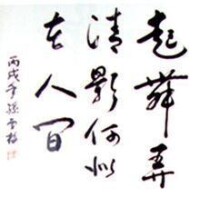 起舞弄
清影何似
在人间
丙戌年孙方敏